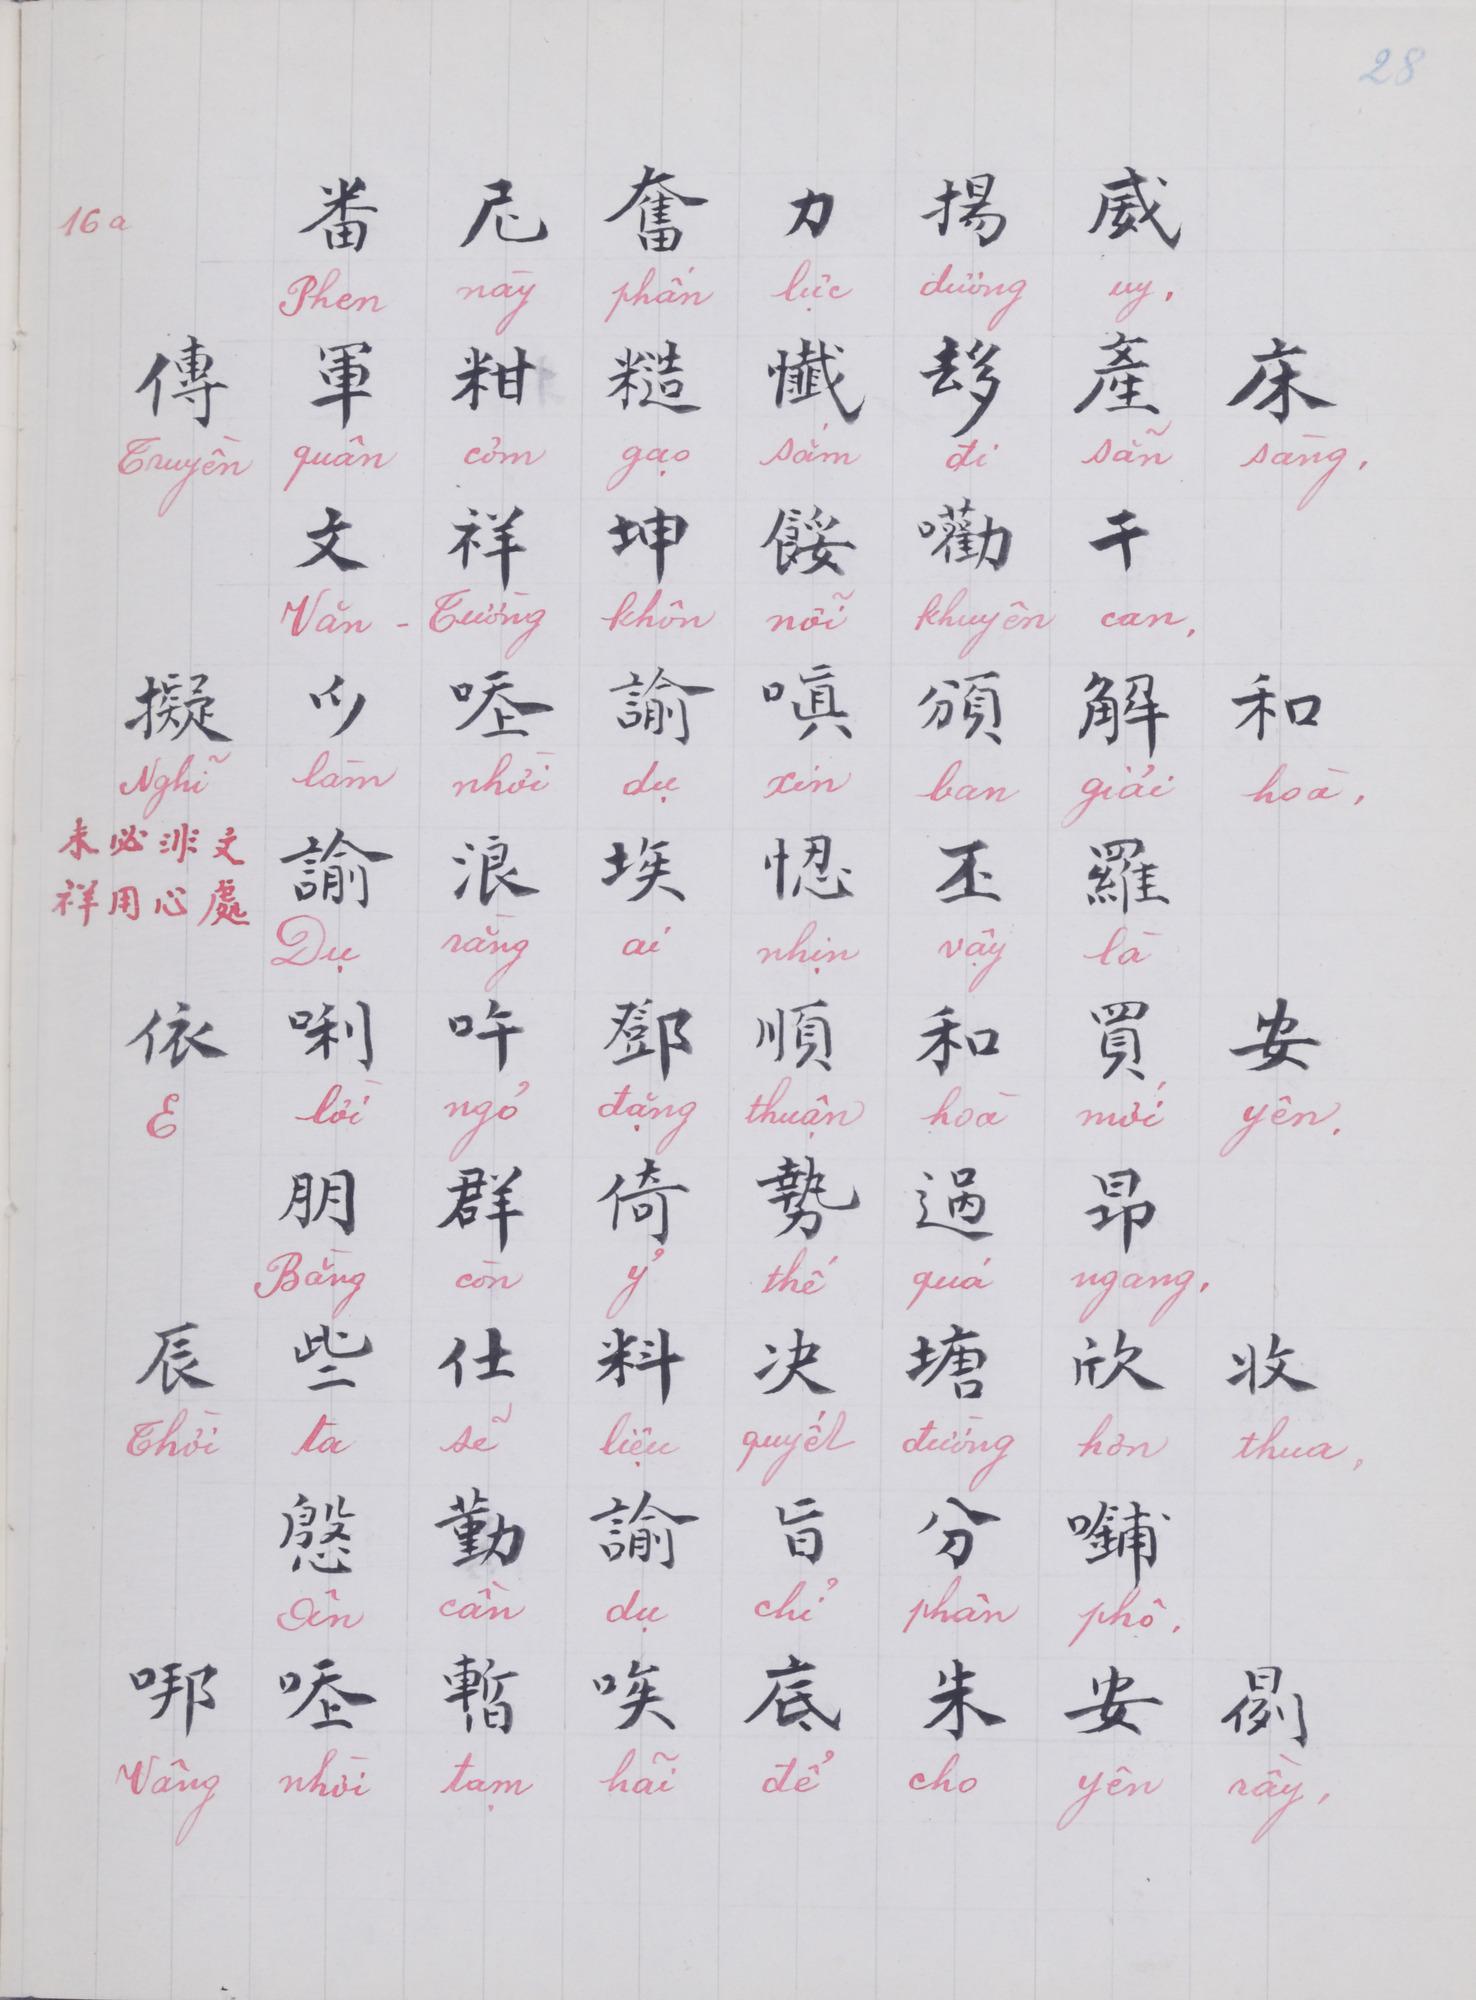 28
16a
番 尼 奮 力 揚 威
Phen này phấn lực dương uy,
傳 軍 粓 糙 懺 𠫾 產 床
Truyền quân cơm gạo sắm đi sẵn sàng,
文 祥 坤 餒 嚾 干
Văn - Tường khôn nỗi khuyên can,
擬 𫜵 㗂 諭 嗔 頒 解 和
Nghĩ làm nhời dụ xin ban giải hoà,
未 必 非 文
祥 用 心 處
諭 浪 埃 𢜝 丕 羅
Dụ rằng ai nhịn vậy là
依 唎 吘 鄧 順 和 買 安
E lời ngỏ đặng thuận hoà mới yên.
朋 群 倚 勢 過 昂
Bằng còn ỷ thế quá ngang,
辰 些 仕 料 决 塘 欣 收
Thời ta sẽ liệu quyết đường hơn thua,
慇 勤 諭 旨 分 𠸂
Ân cần dụ chỉ phân phô,
㖫 𠳒 暫 唉 底 朱 安 𣋽
Vâng nhời tạm hãi để cho yên rầy,